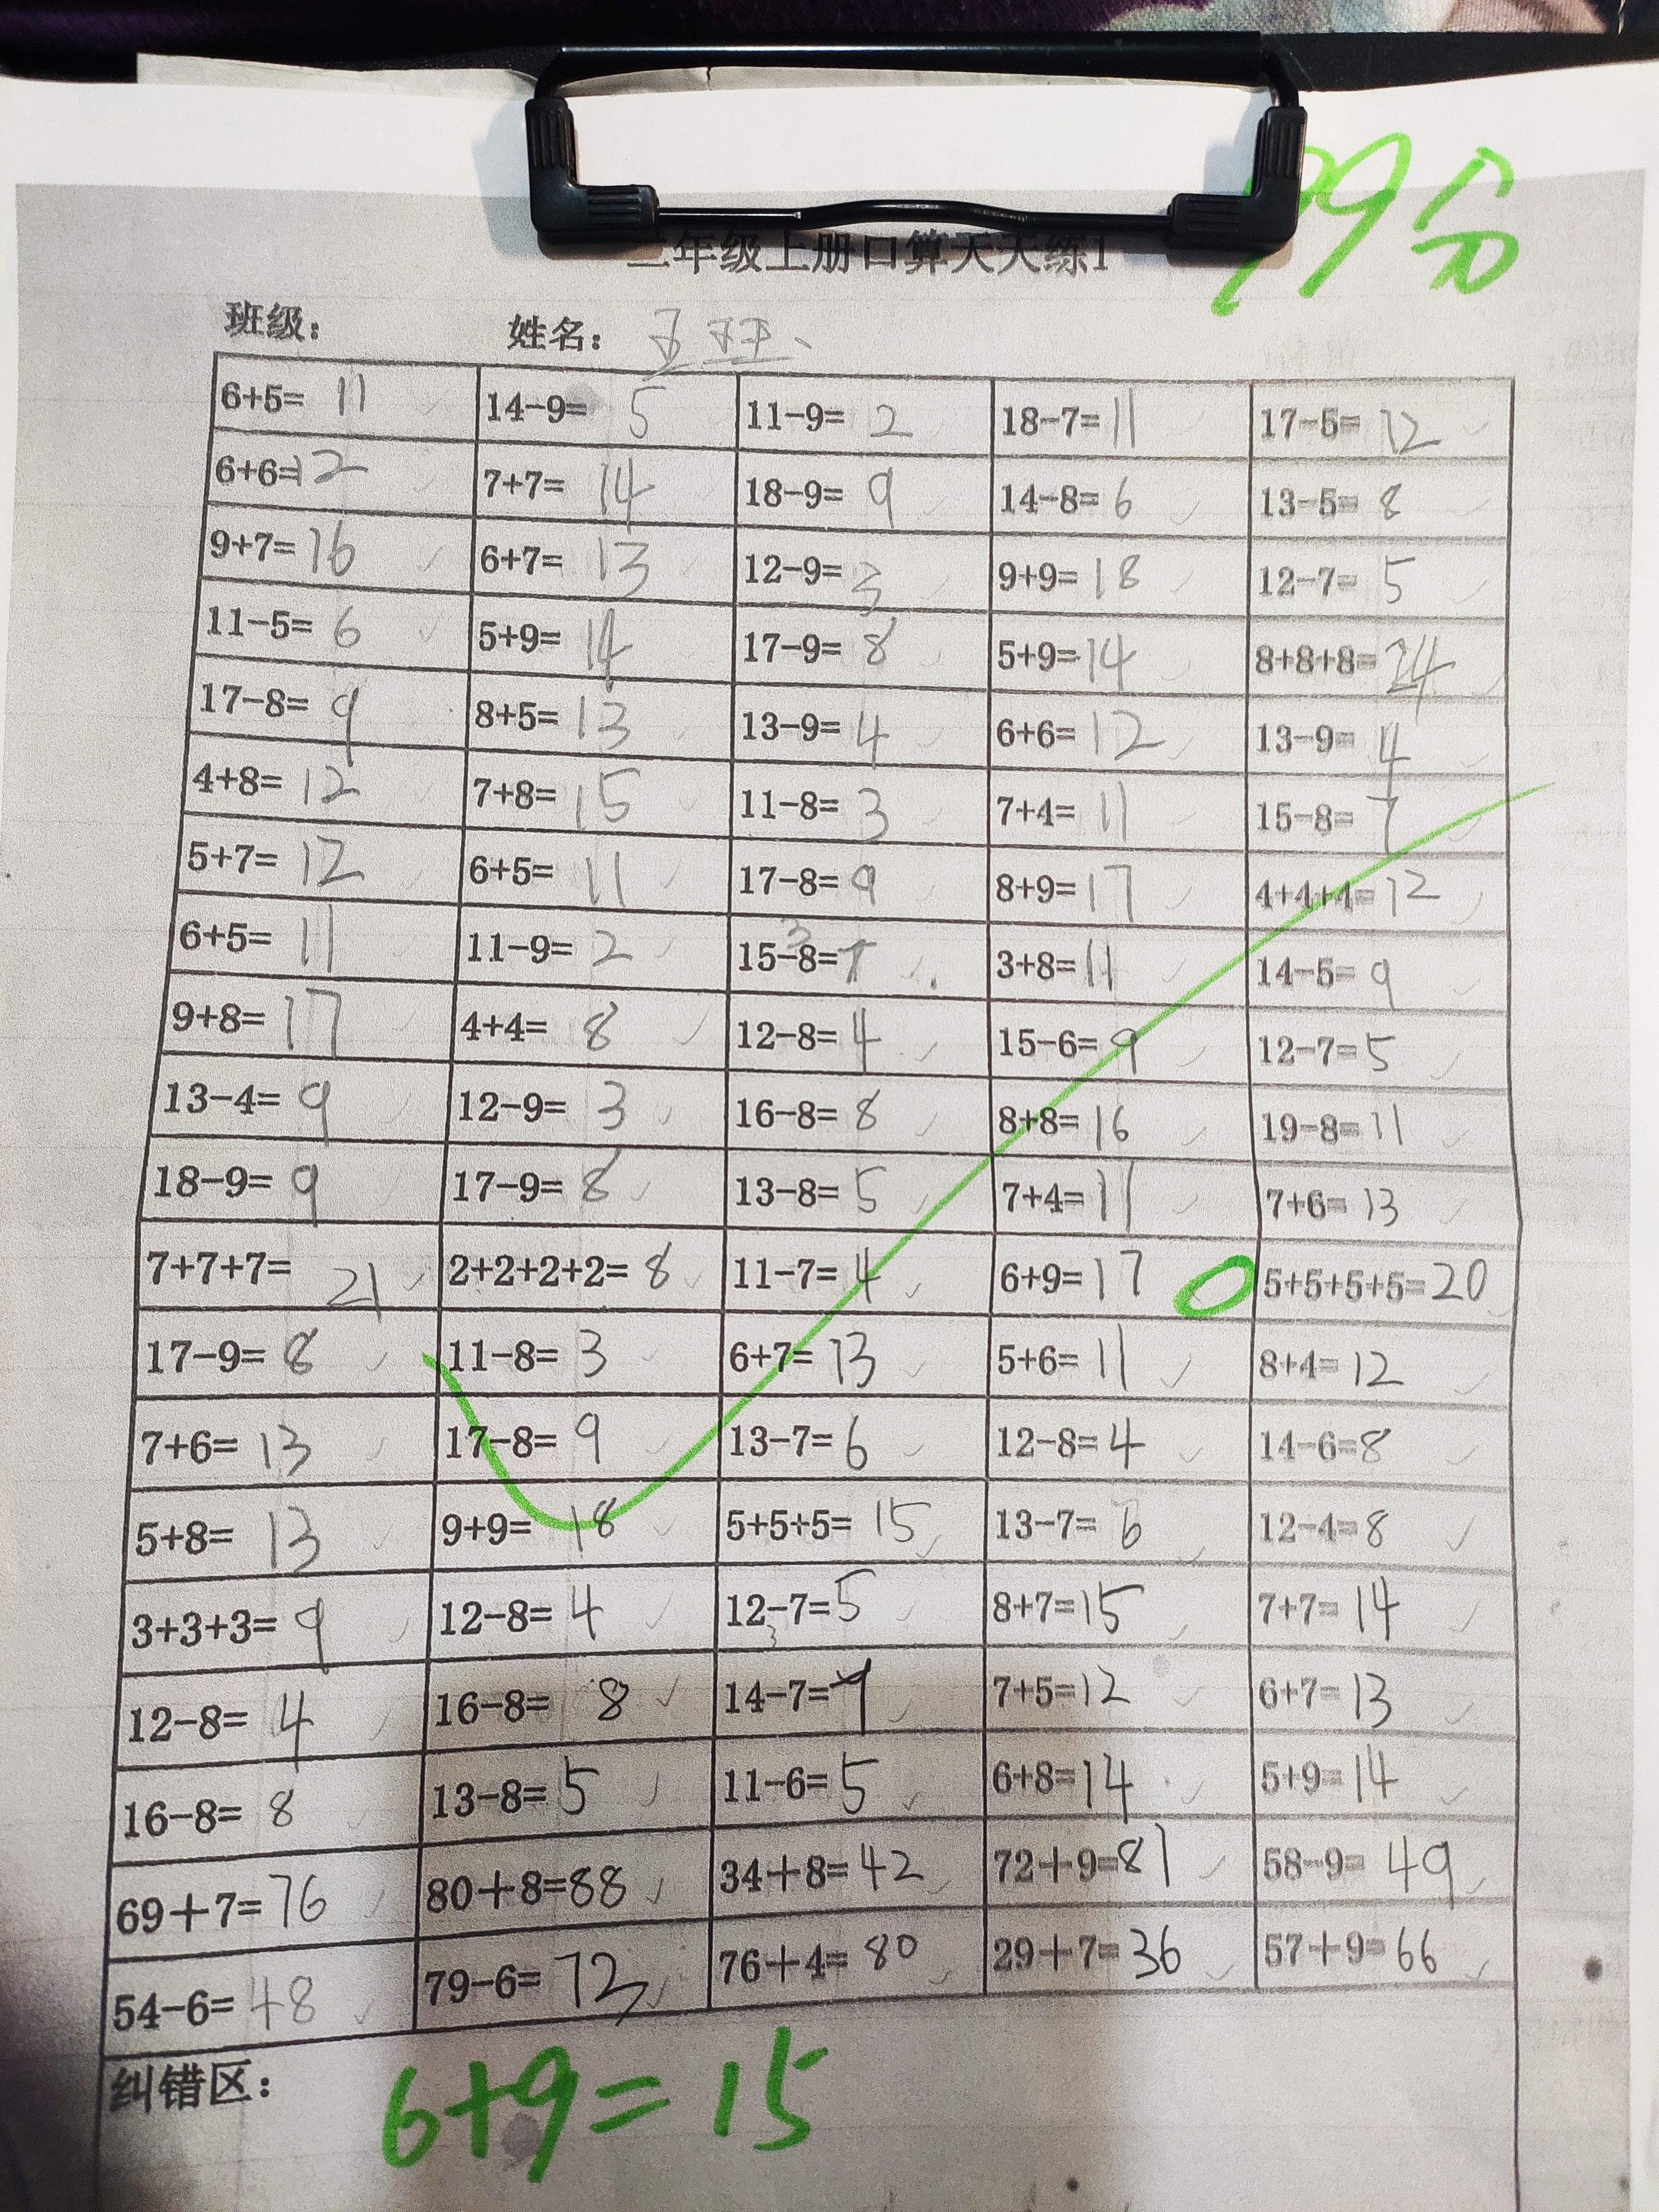 99分
二年级上册口算天天练1
班级： 姓名：
6+5= 11 14-9= 5 11-9= 2 18-7= 11 17-5= 12
6+6= 12 7+7= 14 18-9= 9 14-8= 6 13-5= 8
9+7= 16 6+7= 13 12-9= 3 9+9= 18 12-7= 5
11-5= 6 5+9= 14 17-9= 8 5+9= 14 8+8+8= 24
17-8= 9 8+5= 13 13-9= 4 6+6= 12 13-9= 4
4+8= 12 7+8= 15 11-8= 3 7+4= 11 15-8= 7
5+7= 12 6+5= 11 17-8= 9 8+9= 17 4+4+4= 12
6+5= 11 11-9= 2 15-8= 7 3+8= 11 14-5= 9
9+8= 17 4+4= 8 12-8= 4 15-6= 9 12-7= 5
13-4= 9 12-9= 3 16-8= 8 8+8= 16 19-8= 11
18-9= 9 17-9= 8 13-8= 5 7+4= 11 7+6= 13
7+7+7= 21 2+2+2+2= 8 11-7= 4 6+9= 17 5+5+5+5= 20
17-9= 8 11-8= 3 6+7= 13 5+6= 11 8+4= 12
7+6= 13 17-8= 9 13-7= 6 12-8= 4 14-6= 8
5+8= 13 9+9= 18 5+5+5= 15 13-7= 6 12-4= 8
3+3+3= 9 12-8= 4 12-7= 5 8+7= 15 7+7= 14
12-8= 4 16-8= 8 14-7= 7+5= 12 6+7= 13
16-8= 8 13-8= 5 11-6= 5 6+8= 14 5+9= 14
69+7= 76 80+8= 88 34+8= 42 72+9= 81 58-9= 49
54-6= 48 79-6= 73 76+4= 80 29+7= 36 57+9= 66
纠错区：
6+9=15